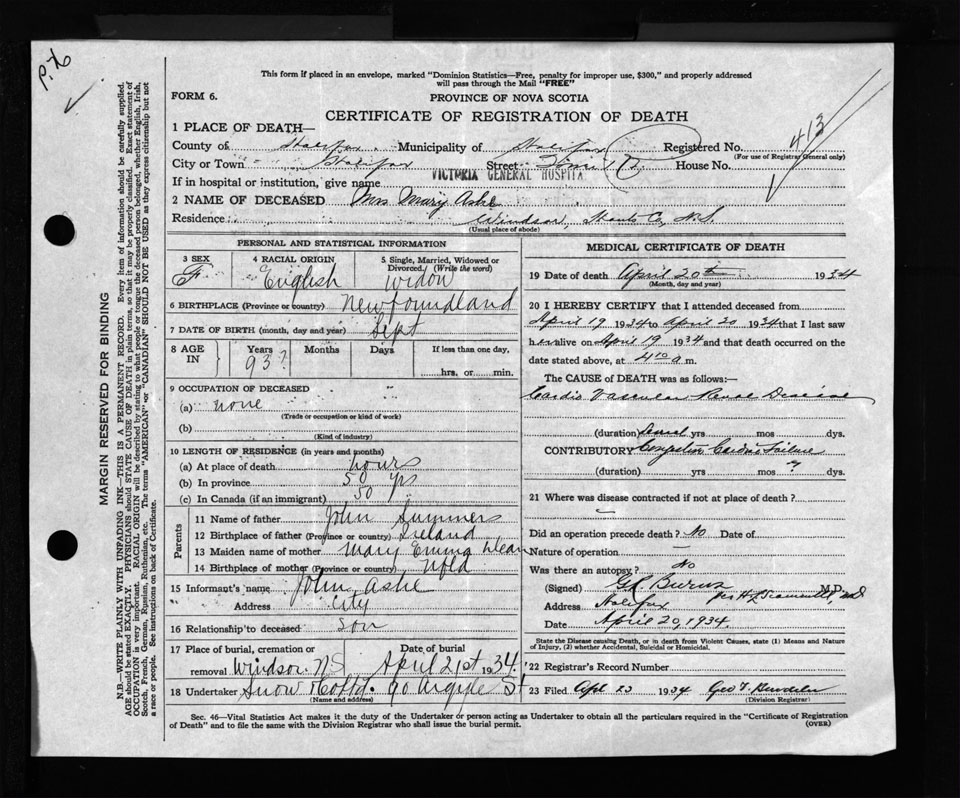 p. 76
This form if placed in an envelope, marked "Dominion Statistics—Free, penalty for improper use, $300," and properly addressed
will pass through the Mail "FREE"
FORM 6.
PROVINCE OF NOVA SCOTIA
CERTIFICATE OF REGISTRATION OF DEATH
413
1 PLACE OF DEATH—
County of Halifax Municipality of Halifax Registered No.
(For use of Registrar General only)
City or Town " " Halifax Street House No.
VICTORIA GENERAL HOSPITAL
If in hospital or institution, give name
2 NAME OF DECEASED Mrs Mary Ashe
Residence Windsor, Hants Co, N.S.
(Usual place of abode)
PERSONAL AND STATISTICAL INFORMATION
3 SEX 4 RACIAL ORIGIN 5 Single, Married, Widowed or
Divorced (Write the word)
F English Widow
6 BIRTHPLACE (Province or country) Newfoundland
7 DATE OF BIRTH (month, day and year) Sept
8 AGE IN Years Months Days If less than one day,
93? hrs. or min.
9 OCCUPATION OF DECEASED
(a) none
(Trade or occupation or kind of work)
(b)
(Kind of industry)
10 LENGTH OF RESIDENCE (in years and months)
(a) At place of death hours
(b) In province 50 yrs
(c) In Canada (if an immigrant) 50 "
Parents
11 Name of father John Summers
12 Birthplace of father (Province or country) Ireland
13 Maiden name of mother Mary Emma Dean
14 Birthplace of mother (Province or country) Nfld
15 Informant's name John Ashe
Address City
16 Relationship to deceased Son
17 Place of burial, cremation or Date of burial
removal Windsor. N.S April 21st 1934.
18 Undertaker Snow & Co Ltd. 90 Argyle St
(Name and address)
MEDICAL CERTIFICATE OF DEATH
19 Date of death April 20th 1934
(Month, day and year)
20 I HEREBY CERTIFY that I attended deceased from
April 19 1934 to April 20 1934 that I last saw
her alive on April 19 1934 and that death occurred on the
date stated above, at 4 10 a m.
The CAUSE of DEATH was as follows:—
Cardio Vascular Renal Disease
(duration) Several yrs mos dys.
CONTRIBUTORY Congestive Cardiac Failure
(duration) yrs mos dys.
21 Where was disease contracted if not at place of death?
Did an operation precede death? No Date of
Nature of operation —
Was there an autopsy? No
(Signed) M.D.
Address Halifax
Date April 20, 1934.
State the Disease causing Death, or in death from Violent Causes, state (1) Means and Nature
of Injury, (2) whether Accidental, Suicidal or Homicidal.
22 Registrar's Record Number
23 Filed Apr 23 1934 Geo T.
(Division Registrar)
Sec. 46—Vital Statistics Act makes it the duty of the Undertaker or person acting as Undertaker to obtain all the particulars required in the "Certificate of Registration
of Death" and to file the same with the Division Registrar who shall issue the burial permit.
(OVER)
MARGIN RESERVED FOR BINDING
N.B.—WRITE PLAINLY WITH UNFADING INK—THIS IS A PERMANENT RECORD. Every item of information should be carefully supplied.
AGE should be stated EXACTLY. PHYSICIANS should STATE CAUSE OF DEATH in plain terms, so that it may be properly classified. Exact statement of
OCCUPATION is very important. RACIAL ORIGIN will be described by stating to what people or tongue the deceased person belonged, whether English, Irish,
Scotch, French, German, Russian, Ruthenian, etc. The terms "AMERICAN" or "CANADIAN" SHOULD NOT BE USED as they express citizenship but not
a race or people. See instructions on back of Certificate.